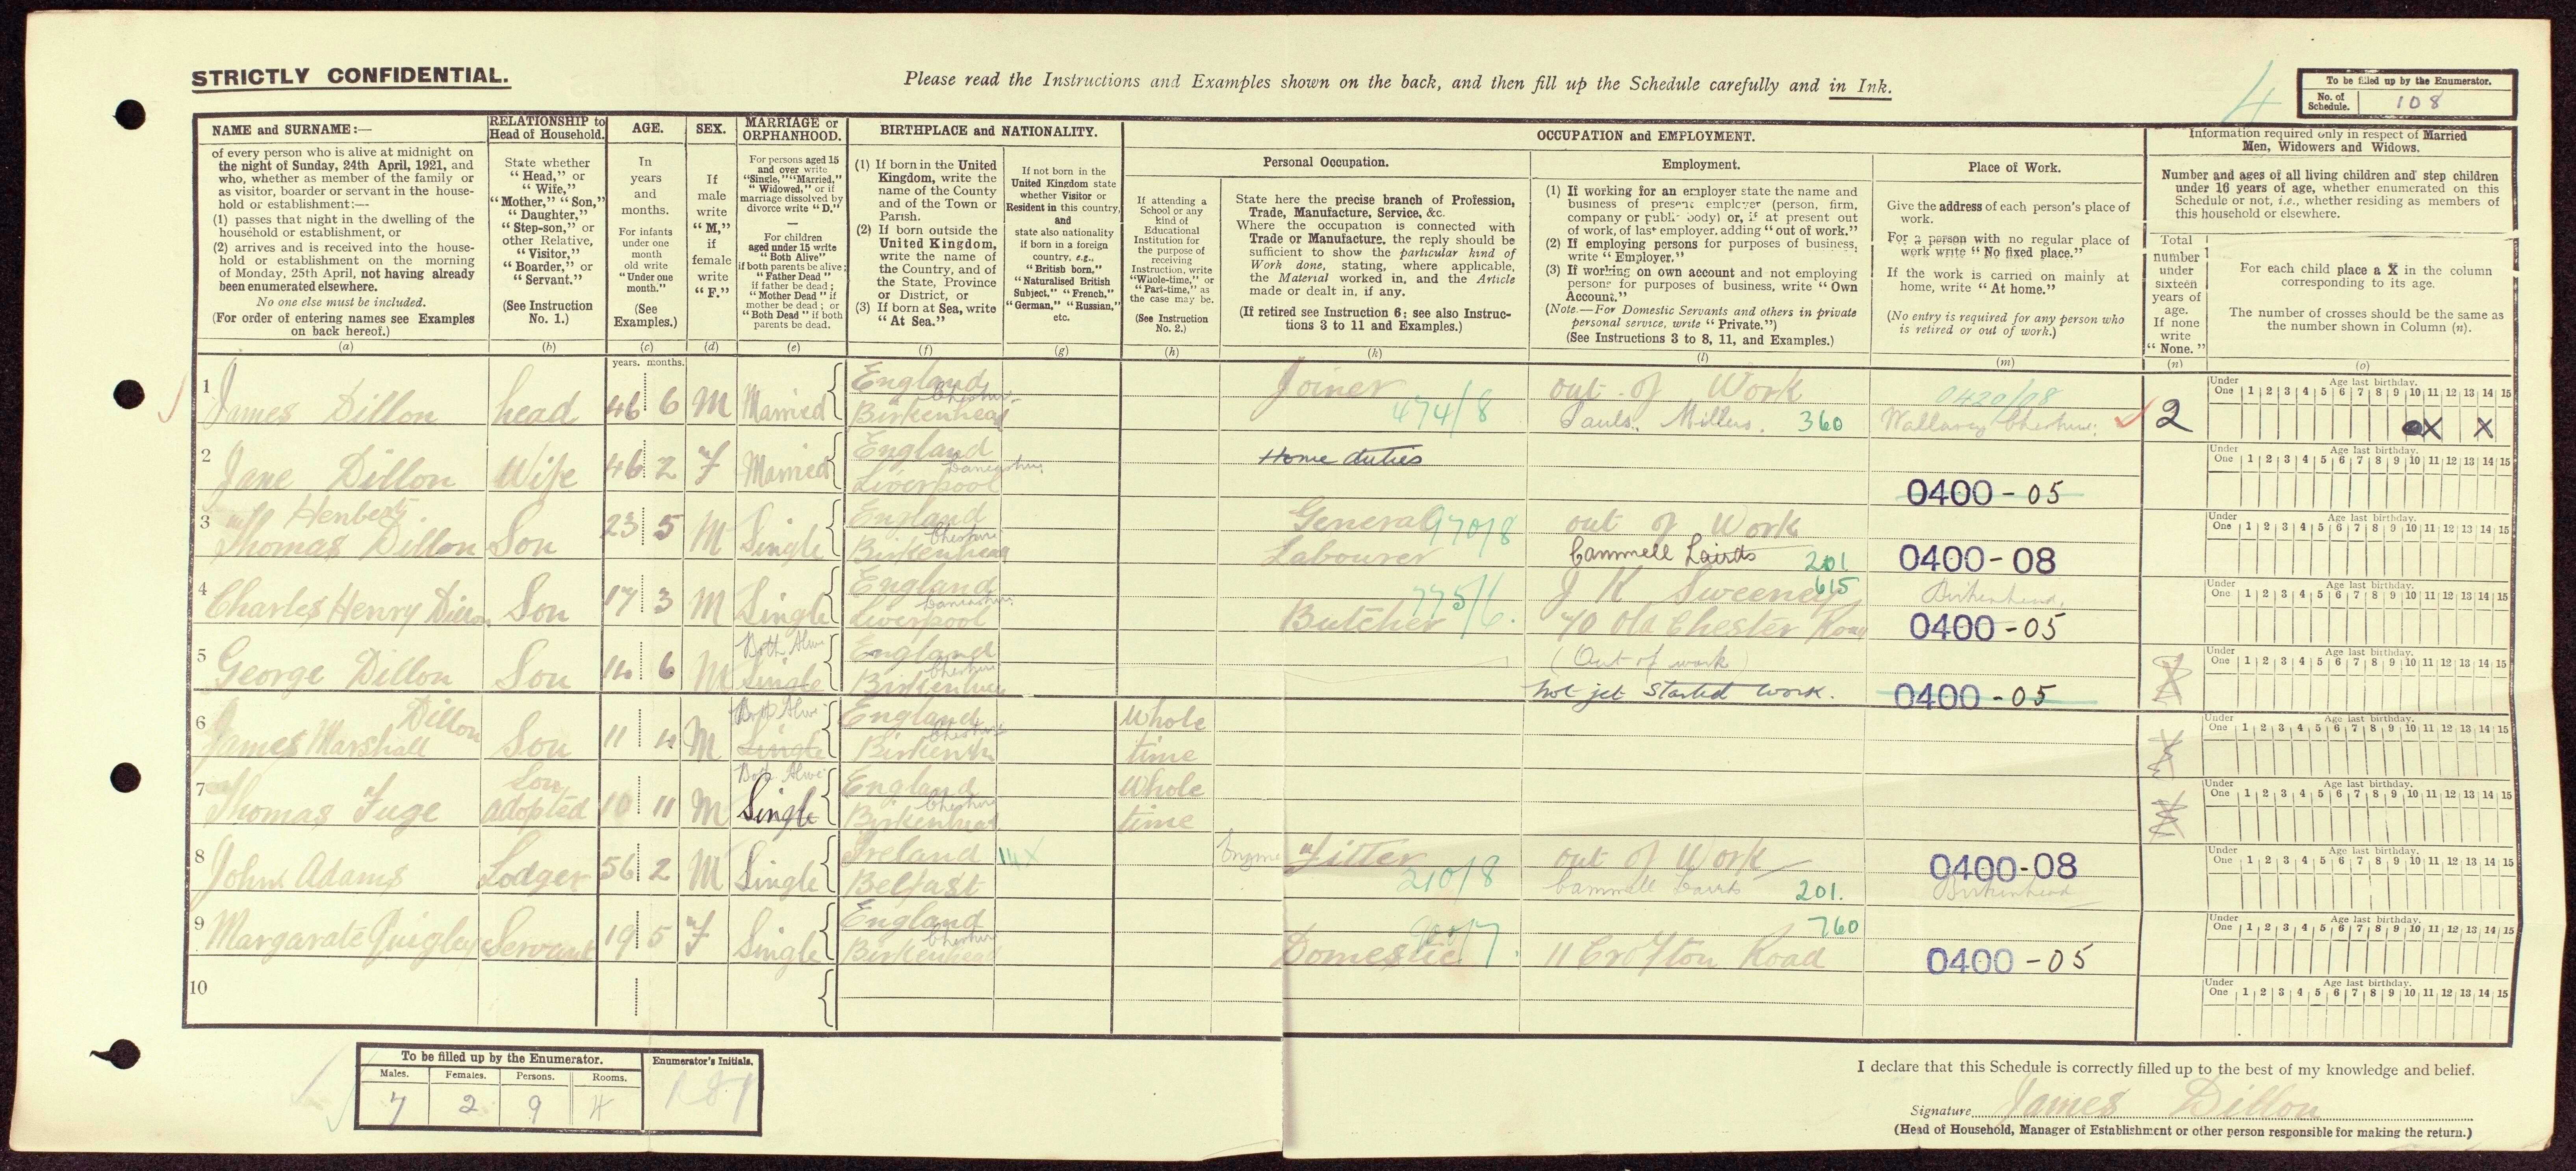 STRICTLY CONFIDENTIAL.
Please read the Instructions and Examples shown on the back, and then fill up the Schedule carefully and in Ink.
4
To be filled up by the Enumerator.
No. of Schedule. 108
NAME and SURNAME:—
of every person who is alive at midnight on
the night of Sunday, 24th April, 1921, and
who, whether as member of the family or
as visitor, boarder or servant in the house-
hold or establishment:—
(1) passes that night in the dwelling of the
household or establishment, or
(2) arrives and is received into the house-
hold or establishment on the morning
of Monday, 25th April, not having already
been enumerated elsewhere.
No one else must be included.
(For order of entering names see Examples
on back hereof.)
(a)
RELATIONSHIP to
Head of Household.
State whether
"Head," or
"Wife,"
"Mother," "Son,"
"Daughter,"
"Step-son," or
other Relative,
"Visitor,"
"Boarder," or
"Servant."
(See Instruction
No. 1.)
(b)
AGE.
In
years
and
months.
For infants
under one
month
old write
"Under one
month."
(See
Examples.)
(c)
years. months.
SEX.
If
male
write
"M,"
if
female
write
"F."
(d)
MARRIAGE or
ORPHANHOOD.
For persons aged 15
and over write
"Single," "Married,"
"Widowed," or if
marriage dissolved by
divorce write "D."
For children
aged under 15 write
"Both Alive"
if both parents be alive;
"Father Dead"
if father be dead;
"Mother Dead" if
mother be dead; or
"Both Dead" if both
parents be dead.
(e)
BIRTHPLACE and NATIONALITY.
(1) If born in the United
Kingdom, write the
name of the County
and of the Town or
Parish.
(2) If born outside the
United Kingdom,
write the name of
the Country, and of
the State, Province
or District, or
(3) If born at Sea, write
"At Sea."
(f)
If not born in the
United Kingdom state
whether Visitor or
Resident in this country,
and
state also nationality
if born in a foreign
country, e.g.,
"British born,"
"Naturalised British
Subject," "French,"
"German," "Russian,"
etc.
(g)
OCCUPATION and EMPLOYMENT.
If attending a
School or any
kind of
Educational
Institution for
the purpose of
receiving
Instruction, write
"Whole-time," or
"Part-time," as
the case may be.
(See Instruction
No. 2.)
(h)
Personal Occupation.
State here the precise branch of Profession,
Trade, Manufacture, Service, &c.
Where the occupation is connected with
Trade or Manufacture, the reply should be
sufficient to show the particular kind of
Work done, stating, where applicable,
the Material worked in, and the Article
made or dealt in, if any.
(If retired see Instruction 6; see also Instruc-
tions 3 to 11 and Examples.)
(k)
Employment.
(1) If working for an employer state the name and
business of present employer (person, firm,
company or public body) or, if at present out
of work, of last employer, adding "out of work."
(2) If employing persons for purposes of business,
write "Employer."
(3) If working on own account and not employing
persons for purposes of business, write "Own
Account."
(Note.—For Domestic Servants and others in private
personal service, write "Private.")
(See Instructions 3 to 8, 11, and Examples.)
(l)
Place of Work.
Give the address of each person's place of
work.
For a person with no regular place of
work write "No fixed place."
If the work is carried on mainly at
home, write "At home."
(No entry is required for any person who
is retired or out of work.)
(m)
Information required only in respect of Married
Men, Widowers and Widows.
Number and ages of all living children and step children
under 16 years of age, whether enumerated on this
Schedule or not, i.e., whether residing as members of
this household or elsewhere.
Total
number
under
sixteen
years of
age.
If none
write
"None."
(n)
For each child place a X in the column
corresponding to its age.
The number of crosses should be the same as
the number shown in Column (n).
(o)
Under One 1 2 3 4 5 6 7 8 9 10 11 12 13 14 15
Age last birthday.
1 James Dillon head 46 6 M Married England Cheshire Birkenhead Joiner 474/8 out of Work Pauls. Millers. 360 0420/08 Wallasey Cheshire 2 X X
2 Jane Dillon Wife 46 2 F Married England Lancashire Liverpool Home duties 0400-05
3 Thomas Henbesty Dillon Son 23 5 M Single England Cheshire Birkenhead General Labourer 970/8 out of Work Cammell Lairds 201 0400-08
4 Charles Henry Dillon Son 17 3 M Single England Lancashire Liverpool Butcher 775/6. J K Sweeney 615 70 Old Chester Road Birkenhead, 0400-05
5 George Dillon Son 14 6 M Both Alive Single England Cheshire Birkenhead (Out of work) not yet started work. 0400-05
6 James Marshall Dillon Son 11 4 M Both Alive Single England Cheshire Birkenh Whole time
7 Thomas Fuge Son adopted 10 11 M Both Alive Single England Cheshire Birkenhead Whole time
8 John Adams Lodger 56 2 M Single Ireland Belfast 14X Engine Fitter 210/8 out of Work Cammell Lairds 201. 0400-08 Birkenhead
9 Margarate Quigley Servant 19 5 F Single England Cheshire Birkenhead Domestic 900/7. 11 Crofton Road 760 0400-05
10
To be filled up by the Enumerator.
Males. Females. Persons. Rooms.
7 2 9 4
Enumerator's Initials.
I declare that this Schedule is correctly filled up to the best of my knowledge and belief.
Signature James Dillon
(Head of Household, Manager of Establishment or other person responsible for making the return.)